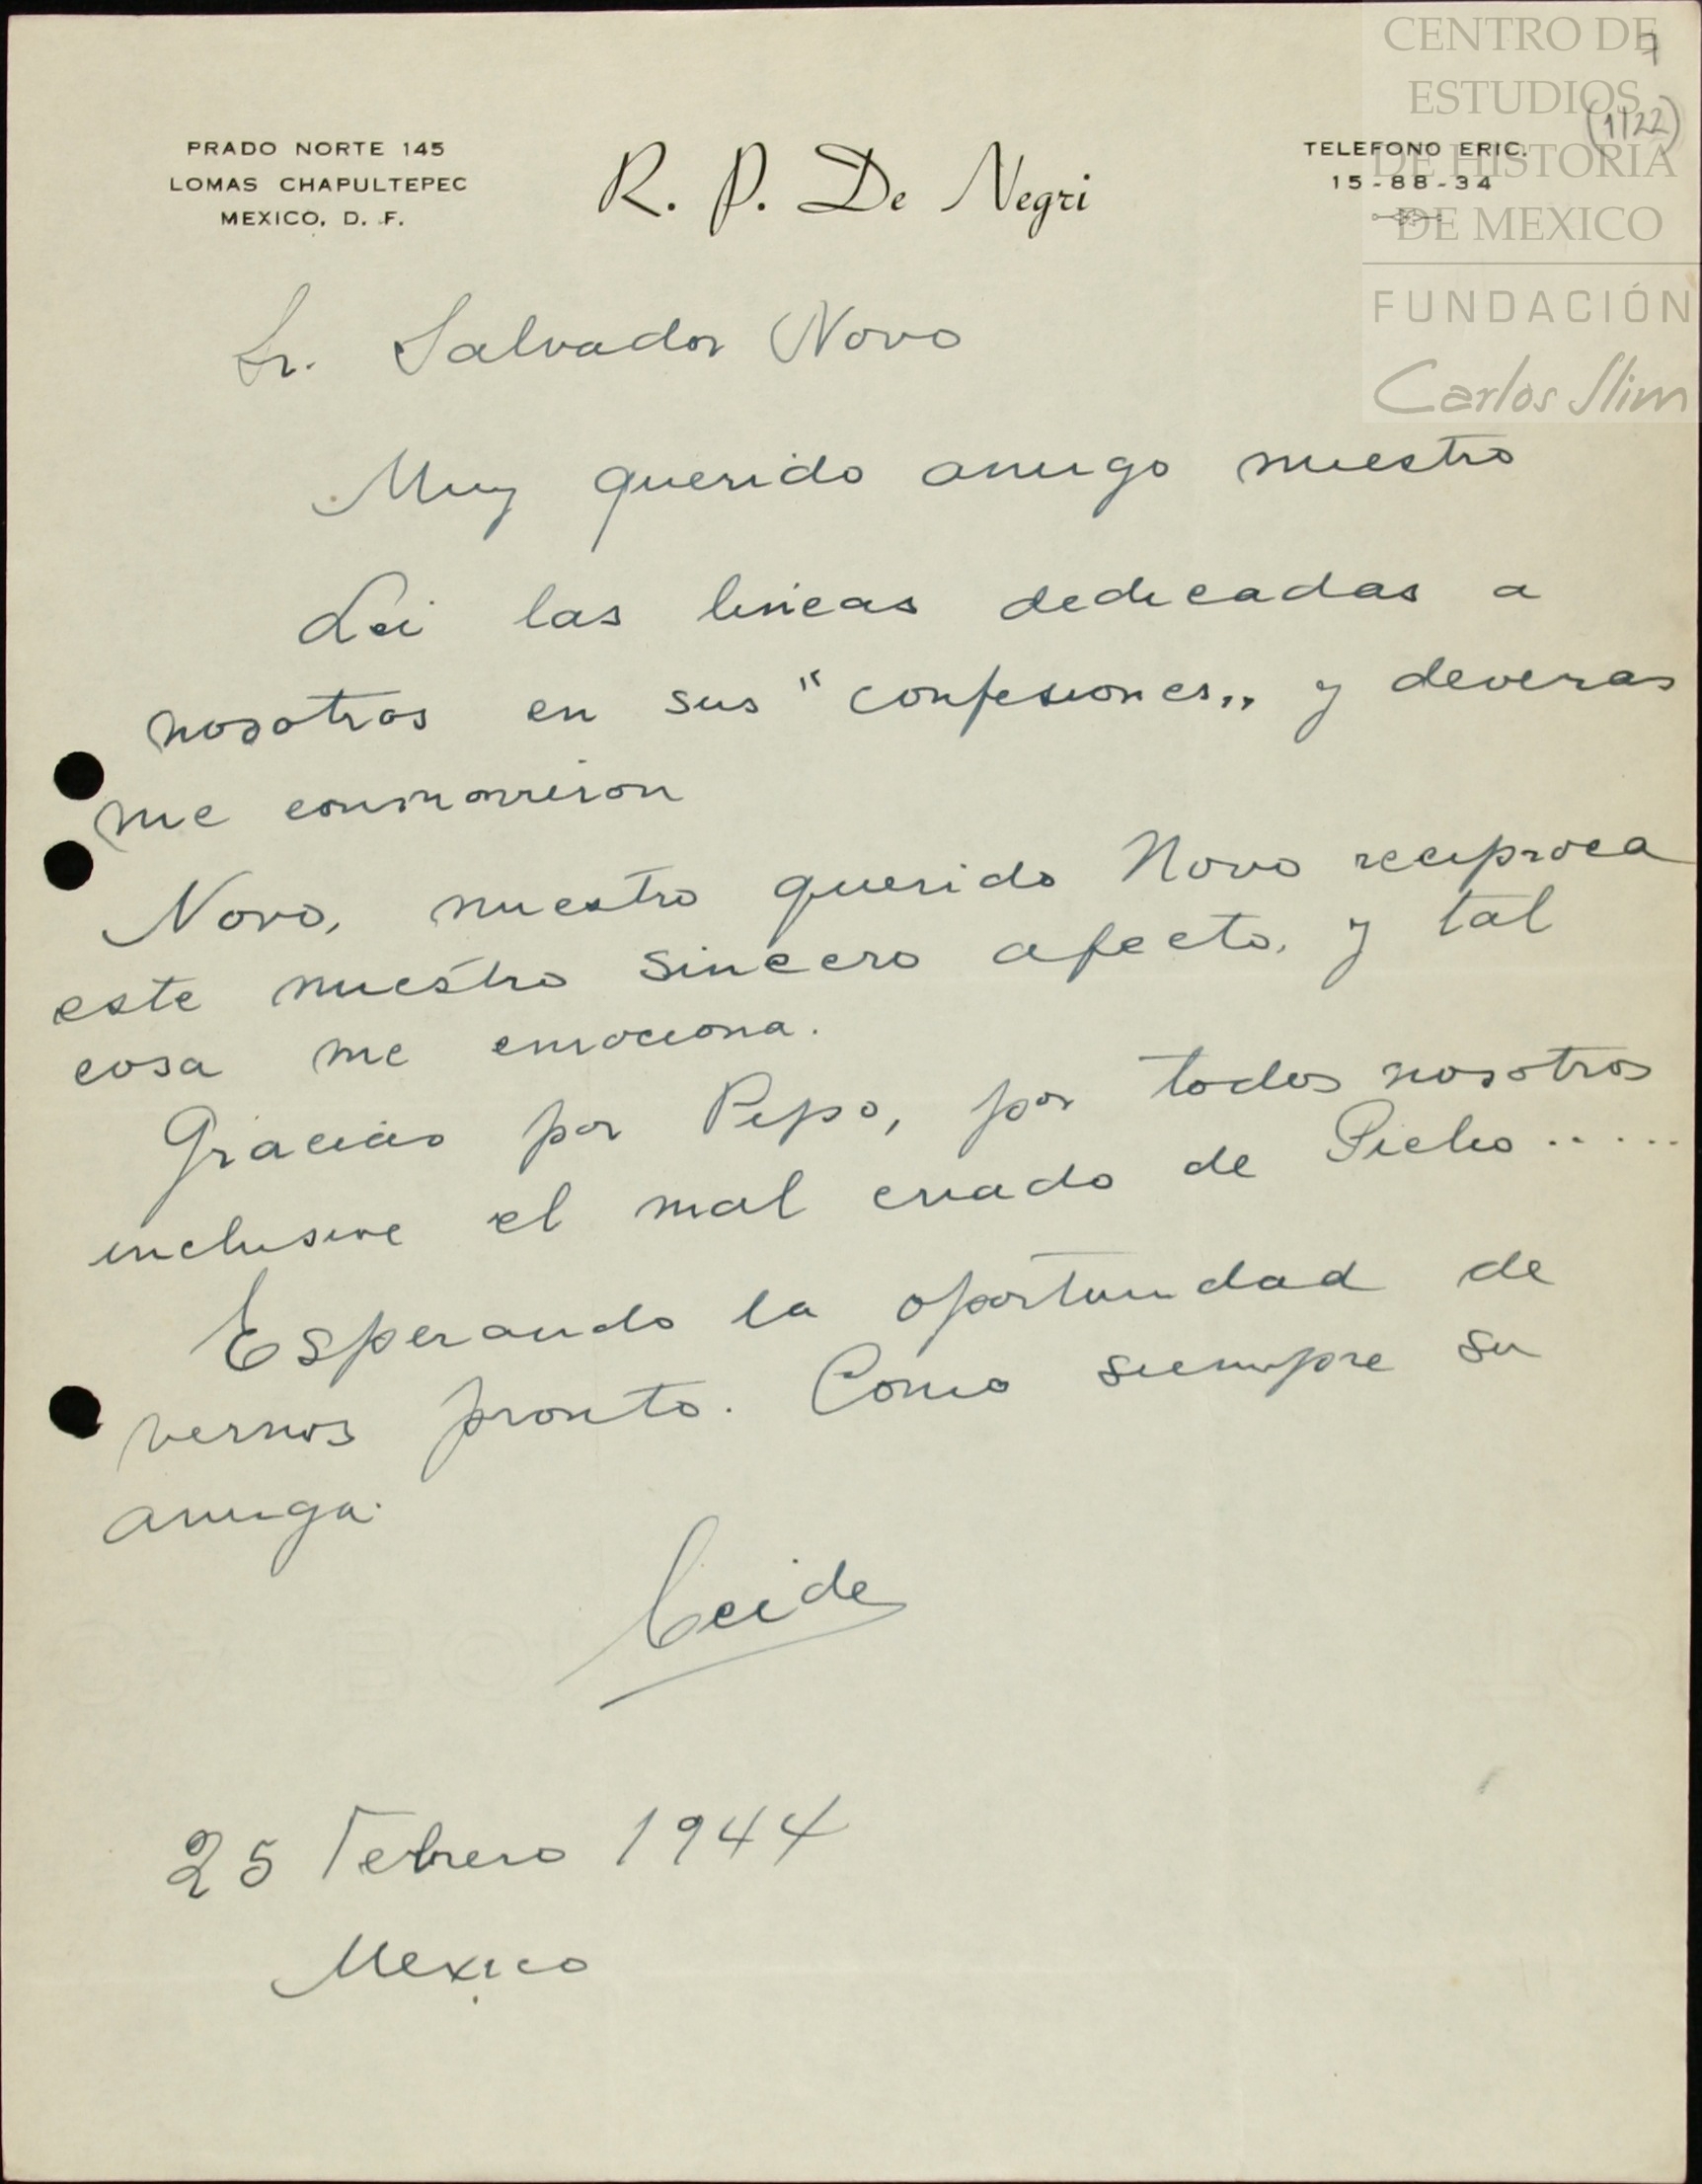 CENTRO DE
ESTUDIOS
DE HISTORIA
DE MEXICO
FUNDACIÓN
Carlos Slim
7
(1/22)
PRADO NORTE 145
LOMAS CHAPULTEPEC
MEXICO, D. F.
R. P. De Negri
TELEFONO ERIC.
15-88-34
Sr. Salvador Novo
Muy querido amigo nuestro
Lei las lineas dedicadas a
nosotros en sus "confesiones" y deveras
me conmovieron
Novo, nuestro querido Novo reciproca
este nuestro sincero afecto, y tal
cosa me emociona.
Gracias por Pepo, por todos nosotros
inclusive el mal criado de Picho.....
Esperando la oportunidad de
vernos pronto. Como siempre su
amiga.
25 Febrero 1944
Mexico